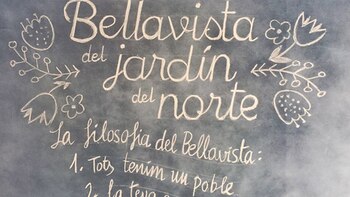 Bellavista
del jardín
del norte
La filosofia del Bellavista:
1. Tots tenim un poble
2. la teva